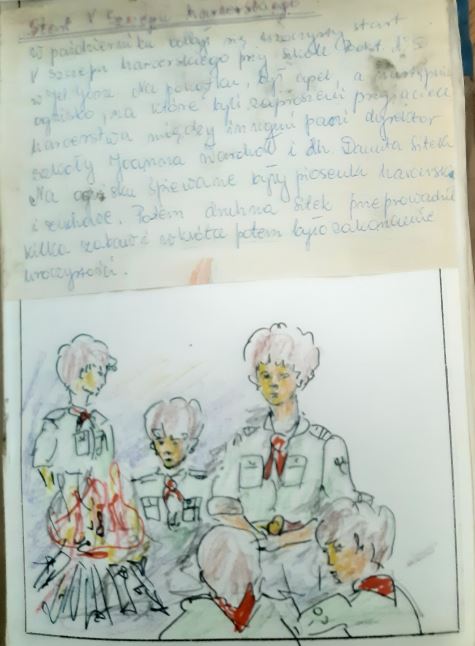 Start V Szczepu harcerskiego
W październiku odbył się uroczysty start
V Szczepu harcerskiego przy Szkole Podst. nr 5
w Jel. Górze. Na początku był apel, a następnie
ognisko, na które byli zaproszeni przyjaciele
harcerstwa między innymi pani dyrektor
szkoły Joanna i dh. Danuta Sitek
Na ognisku śpiewane były piosenki harcerskie
i zuchowe. Potem druhna Sitek przeprowadziła
kilka zabaw i wkrótce potem było zakończenie
uroczystości.